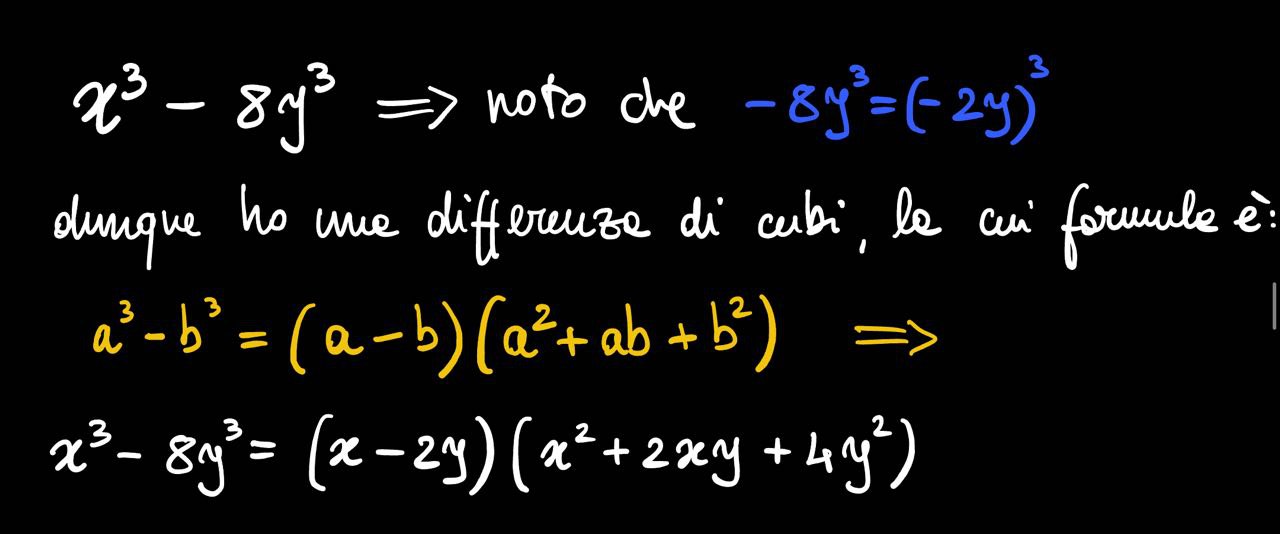 x³ - 8y³ ⟹ noto che -8y³=(-2y)³
dunque ho una differenza di cubi, la cui formula è:
a³-b³ = (a-b)(a²+ab+b²) ⟹
x³-8y³= (x-2y)(x²+2xy+4y²)